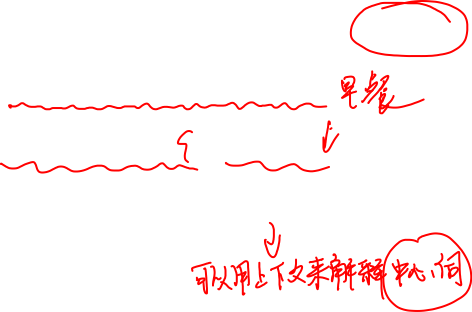 早餐
可以用上下文来解释中心词